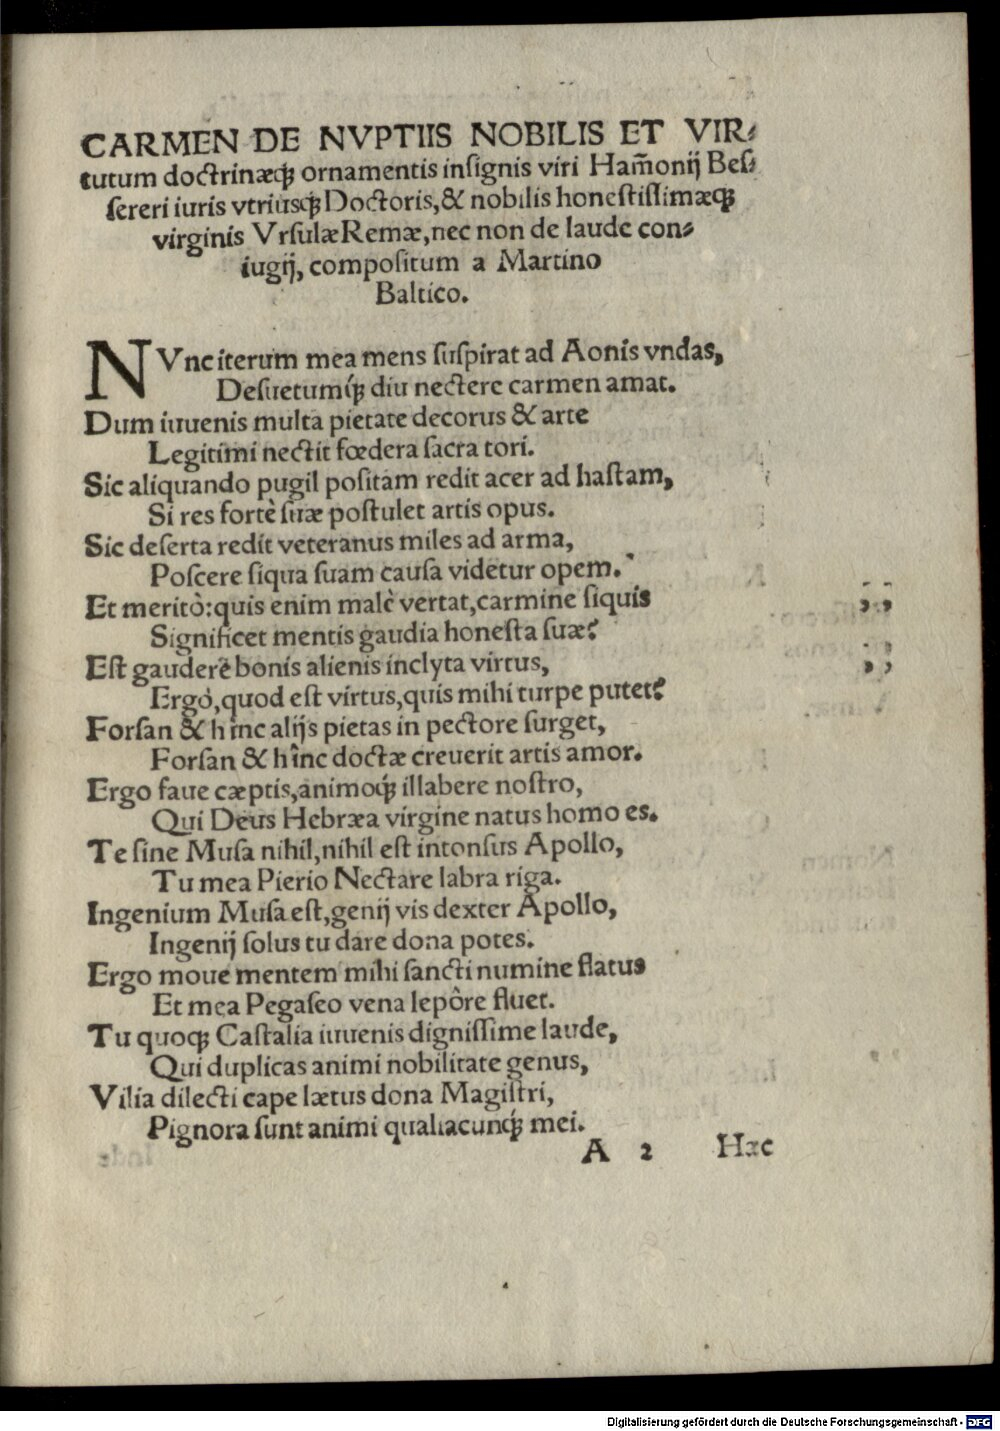 CARMEN DE NVPTIIS NOBILIS ET VIR⸗
tutum doctrinæq́ꝫ ornamentis insignis viri Ham̃onij Bes⸗
sereri iuris vtriusq́ꝫ Doctoris,& nobilis honestissimæq́ꝫ
virginis VrsulæRemæ,nec non de laude con⸗
iugij, compositum a Martino
Baltico.
NVnc iterum mea mens suspirat ad Aonis vndas,
Desuetumq́ꝫ diu nectere carmen amat.
Dum iuuenis multa pietate decorus & arte
Legitimi nectit fœdera sacra tori.
Sic aliquando pugil positam redit acer ad hastam,
Si res fortè suæ postulet artis opus.
Sic deserta redit veteranus miles ad arma,
Poscere siqua suam causa videtur opem.
Et meritò:quis enim malè vertat,carmine siquis
Significet mentis gaudia honesta suæ?
Est gauderè bonis alienis inclyta virtus,
Ergò,quod est virtus,quis mihi turpe putet?
Forsan & hînc alijs pietas in pectore surget,
Forsan & hînc doctæ creuerit artis amor.
Ergo faue cæptis,animoq́ꝫ illabere nostro,
Qui Deus Hebræa virgine natus homo es.
Te sine Musa nihil,nihil est intonsus Apollo,
Tu mea Pierio Nectare labra riga.
Ingenium Musa est,genij vis dexter Apollo,
Ingenij solus tu dare dona potes.
Ergo moue mentem mihi sancti numine flatus
Et mea Pegaseo vena lepôre fluet.
Tu quoqꝫ Castalia iuuenis dignissime laude,
Qui duplicas animi nobilitate genus,
Vilia dilecti cape lætus dona Magistri,
Pignora sunt animi qualiacunq́ꝫ mei.
A 2 Hæc
Digitalisierung gefördert durch die Deutsche Forschungsgemeinschaft - DFG